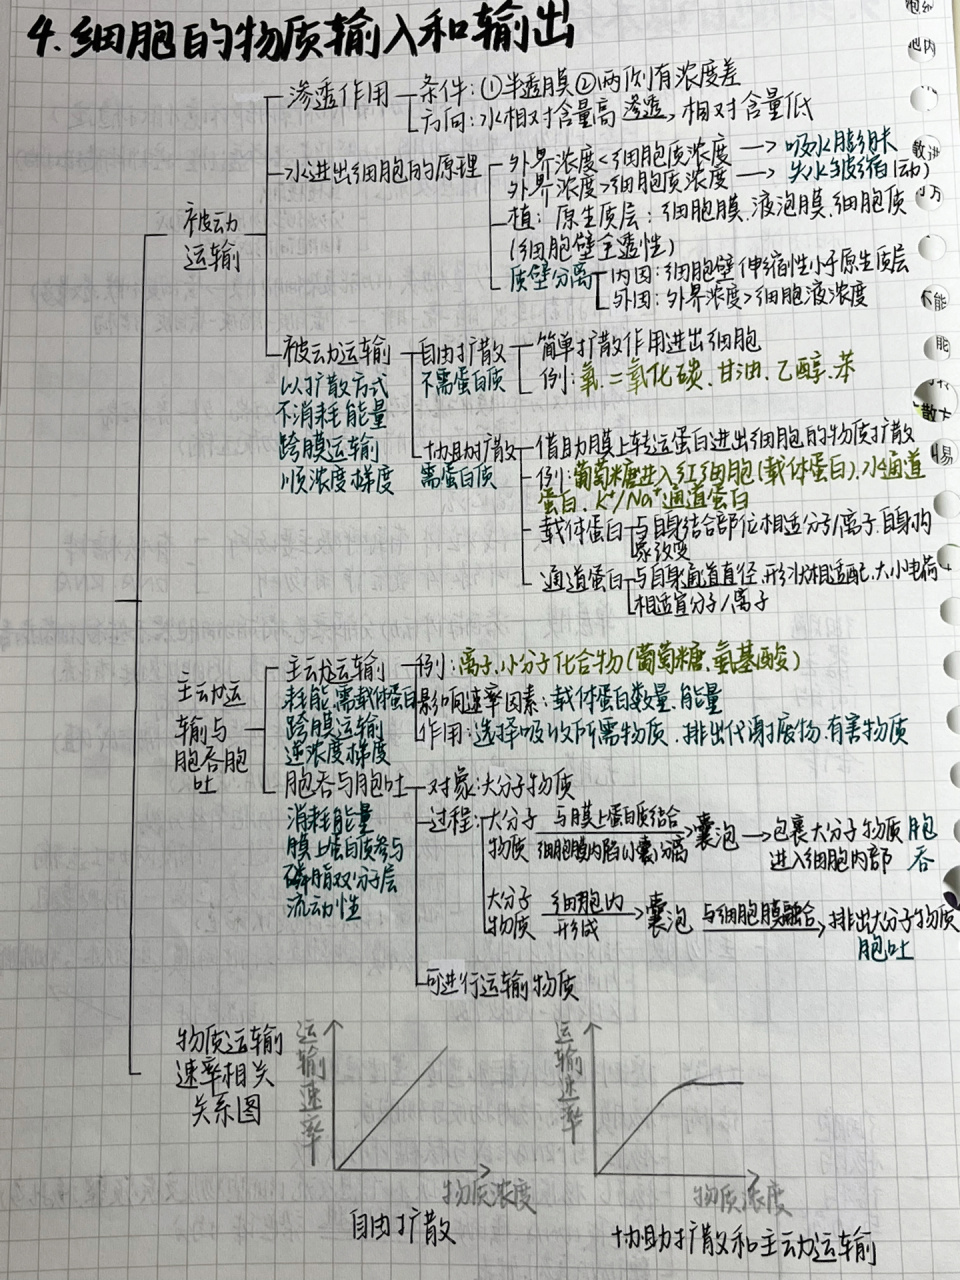 4.细胞的物质输入和输出
渗透作用
条件:①半透膜②两侧有浓度差
方向:水相对含量高 渗透 相对含量低
水进出细胞的原理
外界浓度<细胞质浓度 → 吸水膨胀
外界浓度>细胞质浓度 → 失水皱缩(动)
植:原生质层:细胞膜.液泡膜.细胞质
(细胞壁全透性)
质壁分离
内因:细胞壁伸缩性小于原生质层
外因:外界浓度>细胞液浓度
被动
运输
被动运输
以扩散方式
不消耗能量
跨膜运输
顺浓度梯度
自由扩散
不需蛋白质
简单扩散作用进出细胞
例:氧.二氧化碳.甘油.乙醇.苯
协助扩散
需蛋白质
借助膜上转运蛋白进出细胞的物质扩散
例:葡萄糖进入红细胞(载体蛋白).水通道
蛋白.K⁺/Na⁺通道蛋白
载体蛋白
与自身结合部位相适分子/离子.自身构
象改变
通道蛋白
与自身通道直径.形状相适配.大小电荷
相适宜分子/离子
主动运
输与
胞吞胞
吐
主动运输
耗能.需载体蛋白
跨膜运输
逆浓度梯度
例:离子.小分子化合物(葡萄糖.氨基酸)
影响速率因素:载体蛋白数量.能量
作用:选择吸收所需物质.排出代谢废物.有害物质
胞吞与胞吐
消耗能量
膜上蛋白质参与
磷脂双分子层
流动性
对象:大分子物质
过程:
大分子物质 与膜上蛋白质结合 细胞膜内陷(小囊)分离 → 囊泡 → 包裹大分子物质进入细胞内部 胞吞
大分子物质 细胞内形成 → 囊泡 与细胞膜融合 → 排出大分子物质
胞吐
可进行运输物质
物质运输
速率相关
关系图
运输速率
物质浓度
自由扩散
运输速率
物质浓度
协助扩散和主动运输